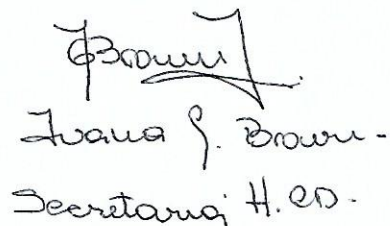 Brown
Ivana G. Brown-
Secretaria H. CD.